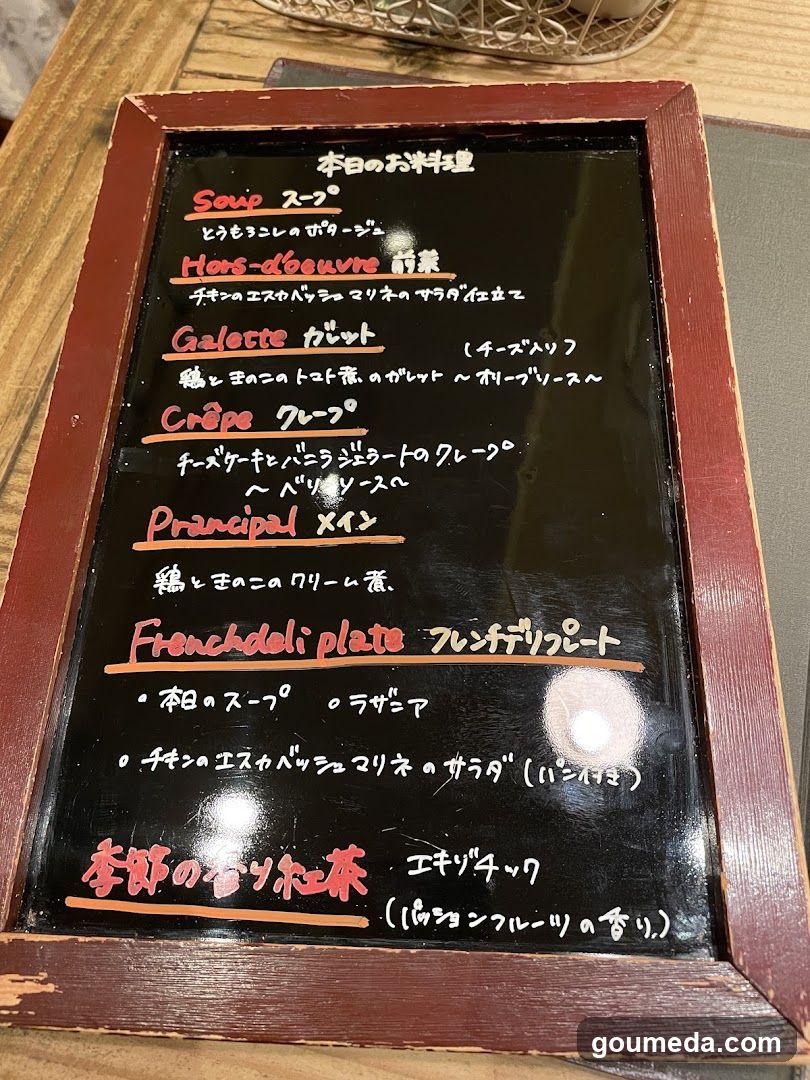 本日のお料理
Soup スープ
とうもろこしのポタージュ
Hors-d'oeuvre 前菜
チキンのエスカベッシュマリネのサラダ仕立て
Galette ガレット
(チーズ入り)
鶏ときのこのトマト煮のガレット 〜オリーブソース〜
Crêpe クレープ
チーズケーキとバニラジェラートのクレープ
〜ベリーソース〜
Prancipal メイン
鶏ときのこのクリーム煮
Frenchdeli plate フレンチデリプレート
・本日のスープ ・ラザニア
・チキンのエスカベッシュマリネのサラダ (パン付き)
季節の香り紅茶 エキゾチック
(パッションフルーツの香り)
goumeda.com